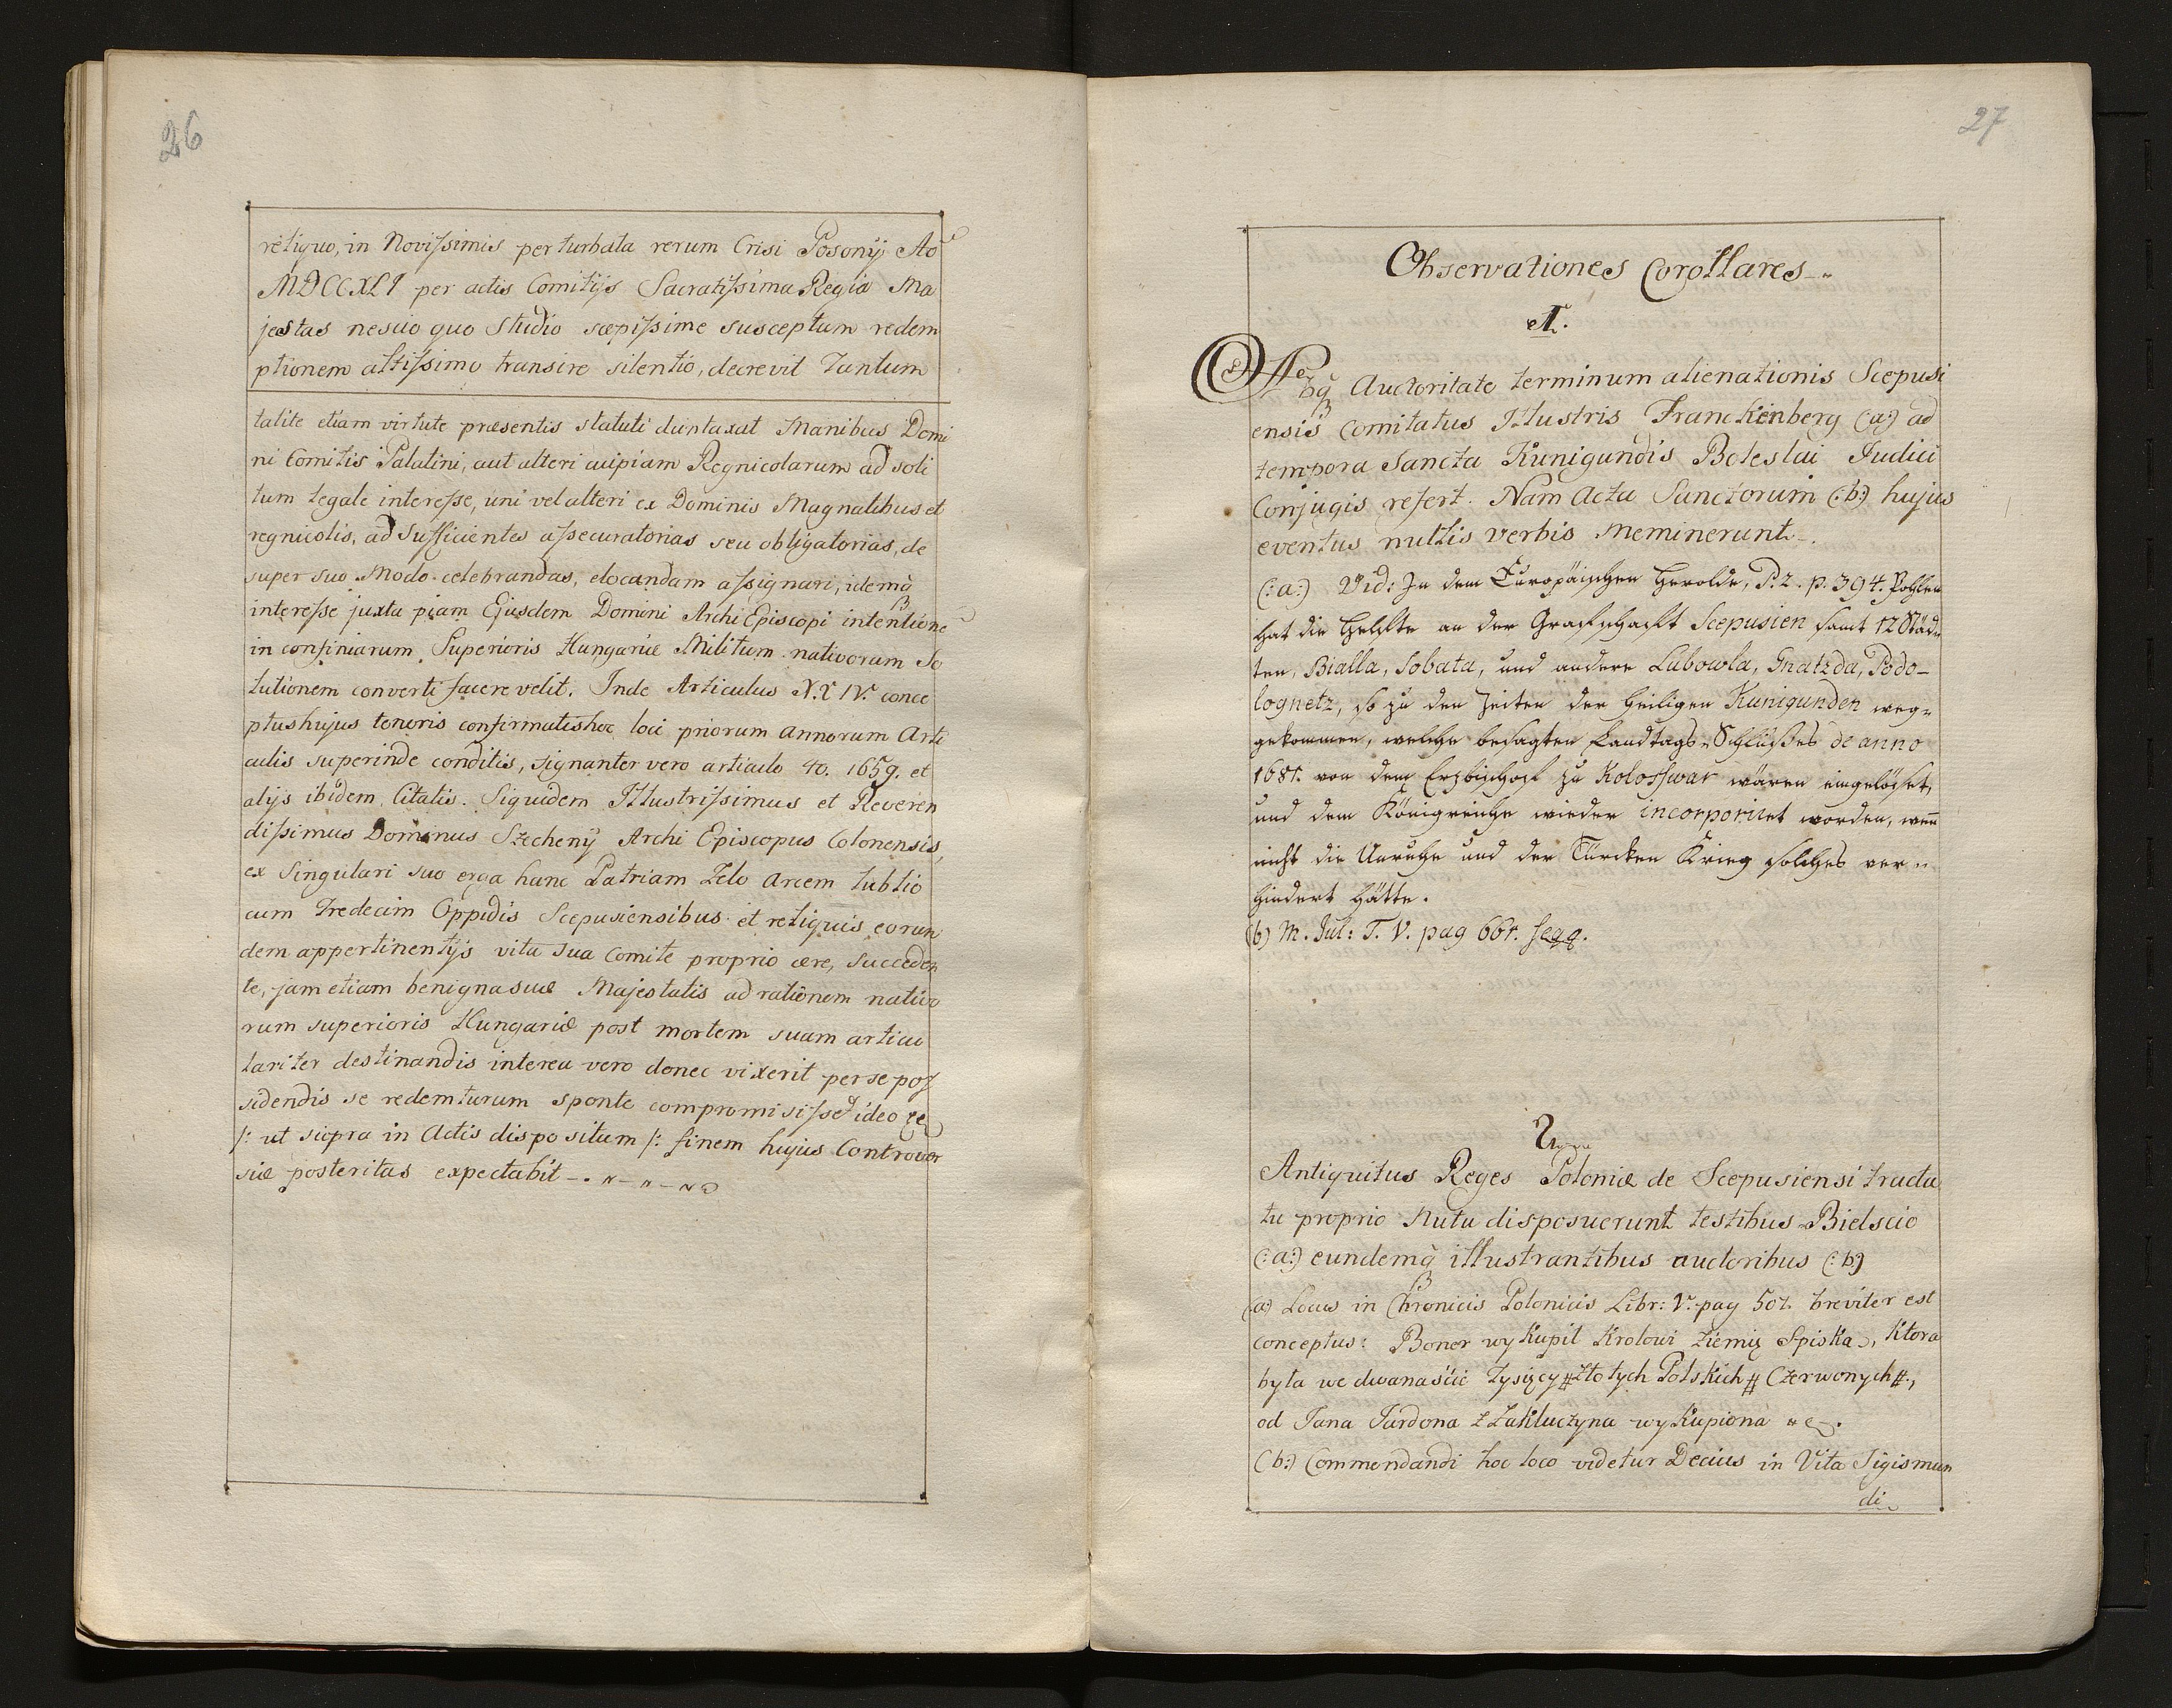 26
reliquo, in Novissimis perturbata rerum Crisi Posonij Ao
MDCCXLI per actis Comitijs Sacratissima Regia Ma
jestas nescio quo studio sæpissime susceptum redem
ptionem altissimo transire silentio, decrevit Tantum
talite etiam virtute præsentis statuti duntaxat Manibus Domi
ni Comitis Palatini, aut alteri cuipiam Regnicolarum ad soli
tum legale interesse, uni vel alteri ex Dominis Magnatibus et
regnicolis, ad Sufficientes assecuratorias seu obligatorias, de
super suo Modo celebrandas, elocandam assignari, idemq
interesse juxta piam Ejusdem Domini Archi Episcopi intentione
in confiniarum Superioris Hungariæ Militum nativorum So
lutionem converti facere velit. Inde Articulus N. X IV. conce
ptus hujus tenoris confirmatis hoc loci priorum annorum Arti
culis superinde conditis, signanter vero articulo 40. 1659. et
alijs ibidem Citatis. Siquidem Illustrissimus et Reveren
dissimus Dominus Szecheny Archi Episcopus Colonensis,
ex Singulari suo erga hanc Patriam Zelo Arcem Lublio
cum Tredecim Oppidis Scepusiensibus et reliquis eorun
dem appertinentijs vita sua Comite proprio ære, succeden
te, jam etiam benigna suæ Majestatis ad rationem nativo
rum superioris Hungariæ post mortem suam articu
lariter destinandis interea vero donec vixerit per se pos
sidendis se redemturum sponte compromisisset ideo
/: ut supra in Actis dispositum /: finem hujus Controver
siæ posteritas expectabit
27
Observationes Corollares
I.
Auctoritate terminum alienationis Scepusi
ensis Comitatus Illustris Franckenberg (:a:) ad
tempora Sancta Kunigundis Boleslai Judici
Conjugis refert. Nam Acta Sanctorum (:b:) hujus
eventus nullis verbis Meminerunt.
(:a:) Vid: In dem Europäischen Herolde, P. 2. p. 394. Pohlen
hat die Helfte an der Graffschafft Scepusien samt 12 Städ
ten, Bialla, Sobata, und andere Lubowla, Gnatzda, Podo-
lognetz, so zu den Zeiten der heiligen Kunigunden weg=
gekommen, welche besagten Landtags=Schlusses de anno
1681. von dem Erzbischoff zu Kolosswar wären eingelöset,
und dem Königreiche wieder incorporiret worden, wen̄
nicht die Unruhe und der Türcken Krieg solches ver=
hindert hätte.
(b) M. Jul: T. V. pag 661. seqq.
2
Antiquitus Reges Poloniæ de Scepusiensi tracta
tu proprio Nutu disposuerunt testibus Bielscio
(:a:) eundemq illustrantibus auctoribus (:b:)
(a) Locus in Chronicis Polonicis Libr: V. pag 507. breviter est
conceptus: Boner wykupil Krolowi ziemię Spiska, Ktora
byla we dwanaście Tysięcy # złotych Polskich # Czerwonych #,
od Jana Jardona z Zakluczyna wykupiona
(b:) Commendandi hoc loco videtur Decius in Vita Sigismun
di